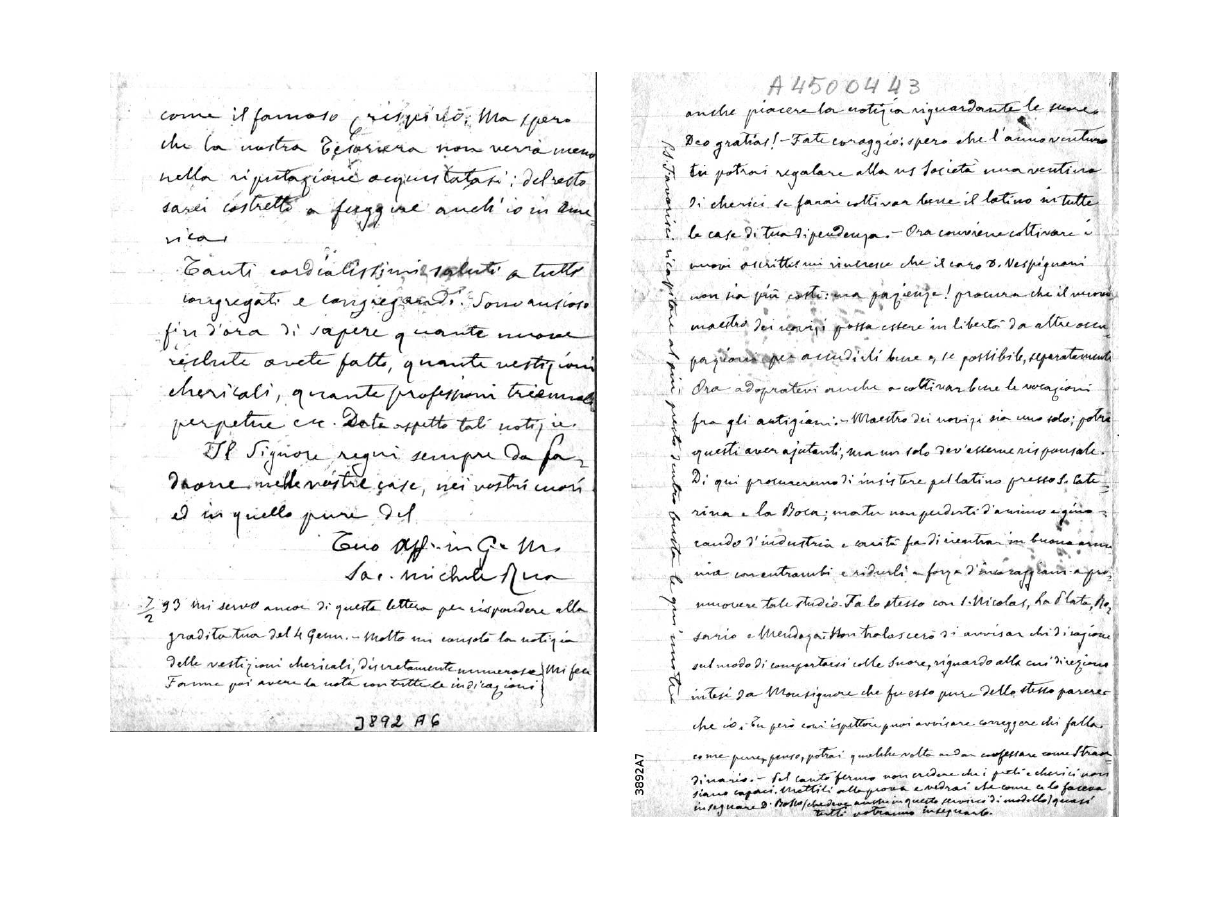 come il famoso Crispino. Ma spero
che la nostra Tesoriera non verrà meno
nella riputazione acquistatasi; del resto
sarei costretto a fuggire anch'io in Ame
rica.
Tanti cordialissimi saluti a tutti
congregati e congregandi. Sono ansioso
fin d'ora di sapere quante nuove
reclute avete fatto, quante vestizioni
chericali, quante professioni triennali
perpetue ecc. Da te aspetto tali notizie.
Il Signore regni sempre da pa-
drone nelle vostre case, nei vostri cuori
ed in quello pure del
Tuo aff. in G. e M.
Sac. Michele Rua
7/2 93 mi servo ancor di questa lettera per rispondere alla
gradita tua del 4 Genn. - Molto mi consolò la notizia
delle vestizioni chericali, discretamente numerose Mi fece
Fammi poi avere la nota con tutte le indicazioni
3892 A6
A4500443
anche piacere la notizia riguardante le suore
Deo gratias! - Fate coraggio: spero che l'anno venturo
tu potrai regalare alla ns Società una ventina
di cherici se farai coltivar bene il latino in tutte
le case di tua dipendenza. - Ora conviene coltivare i
nuovi ascritti: mi rincresce che il caro D. Vespignani
non sia più costì: ma pazienza! procura che il nuovo
maestro dei novizi possa essere in libertà da altre occu
pazioni per accudirli bene e, se possibile, separatamente
Ora adopratevi anche a coltivar bene le vocazioni
fra gli artigiani. - Maestro dei novizi sia uno solo; potrà
questi aver ajutanti, ma un solo dev'esserne risponsale.
Di qui procureremo di insistere pel latino presso S. Cate
rina e la Boca; ma tu non perderti d'animo e gio-
cando d'industria e carità fa di rientrar in buona armo
nia con entrambi e ridurli a forza d'incoraggiam. a pro-
muovere tale studio. Fa lo stesso con S. Nicolas, La Plata, Ro-
sario e Mendoza. Non tralascerò di avvisar chi di ragione
sul modo di comportarsi colle Suore, riguardo alla cui direzione
intesi da Monsignore che fu esso pure dello stesso parere
che io. Tu però così ispettore puoi avvisare correggere chi falla
come pure, penso, potrai qualche volta andar confessare come Straor
dinario. - Pel canto fermo non credere che i preti e cherici non
siano capaci. Mettili alla prova e vedrai che come ce lo faceva
insegnare D. Bosco (che deve anche in questo servirci di modello) quasi
tutti potranno insegnarlo.
PS. Favorisci ricapitare al più presto dentro busta le qui unite
3892A7